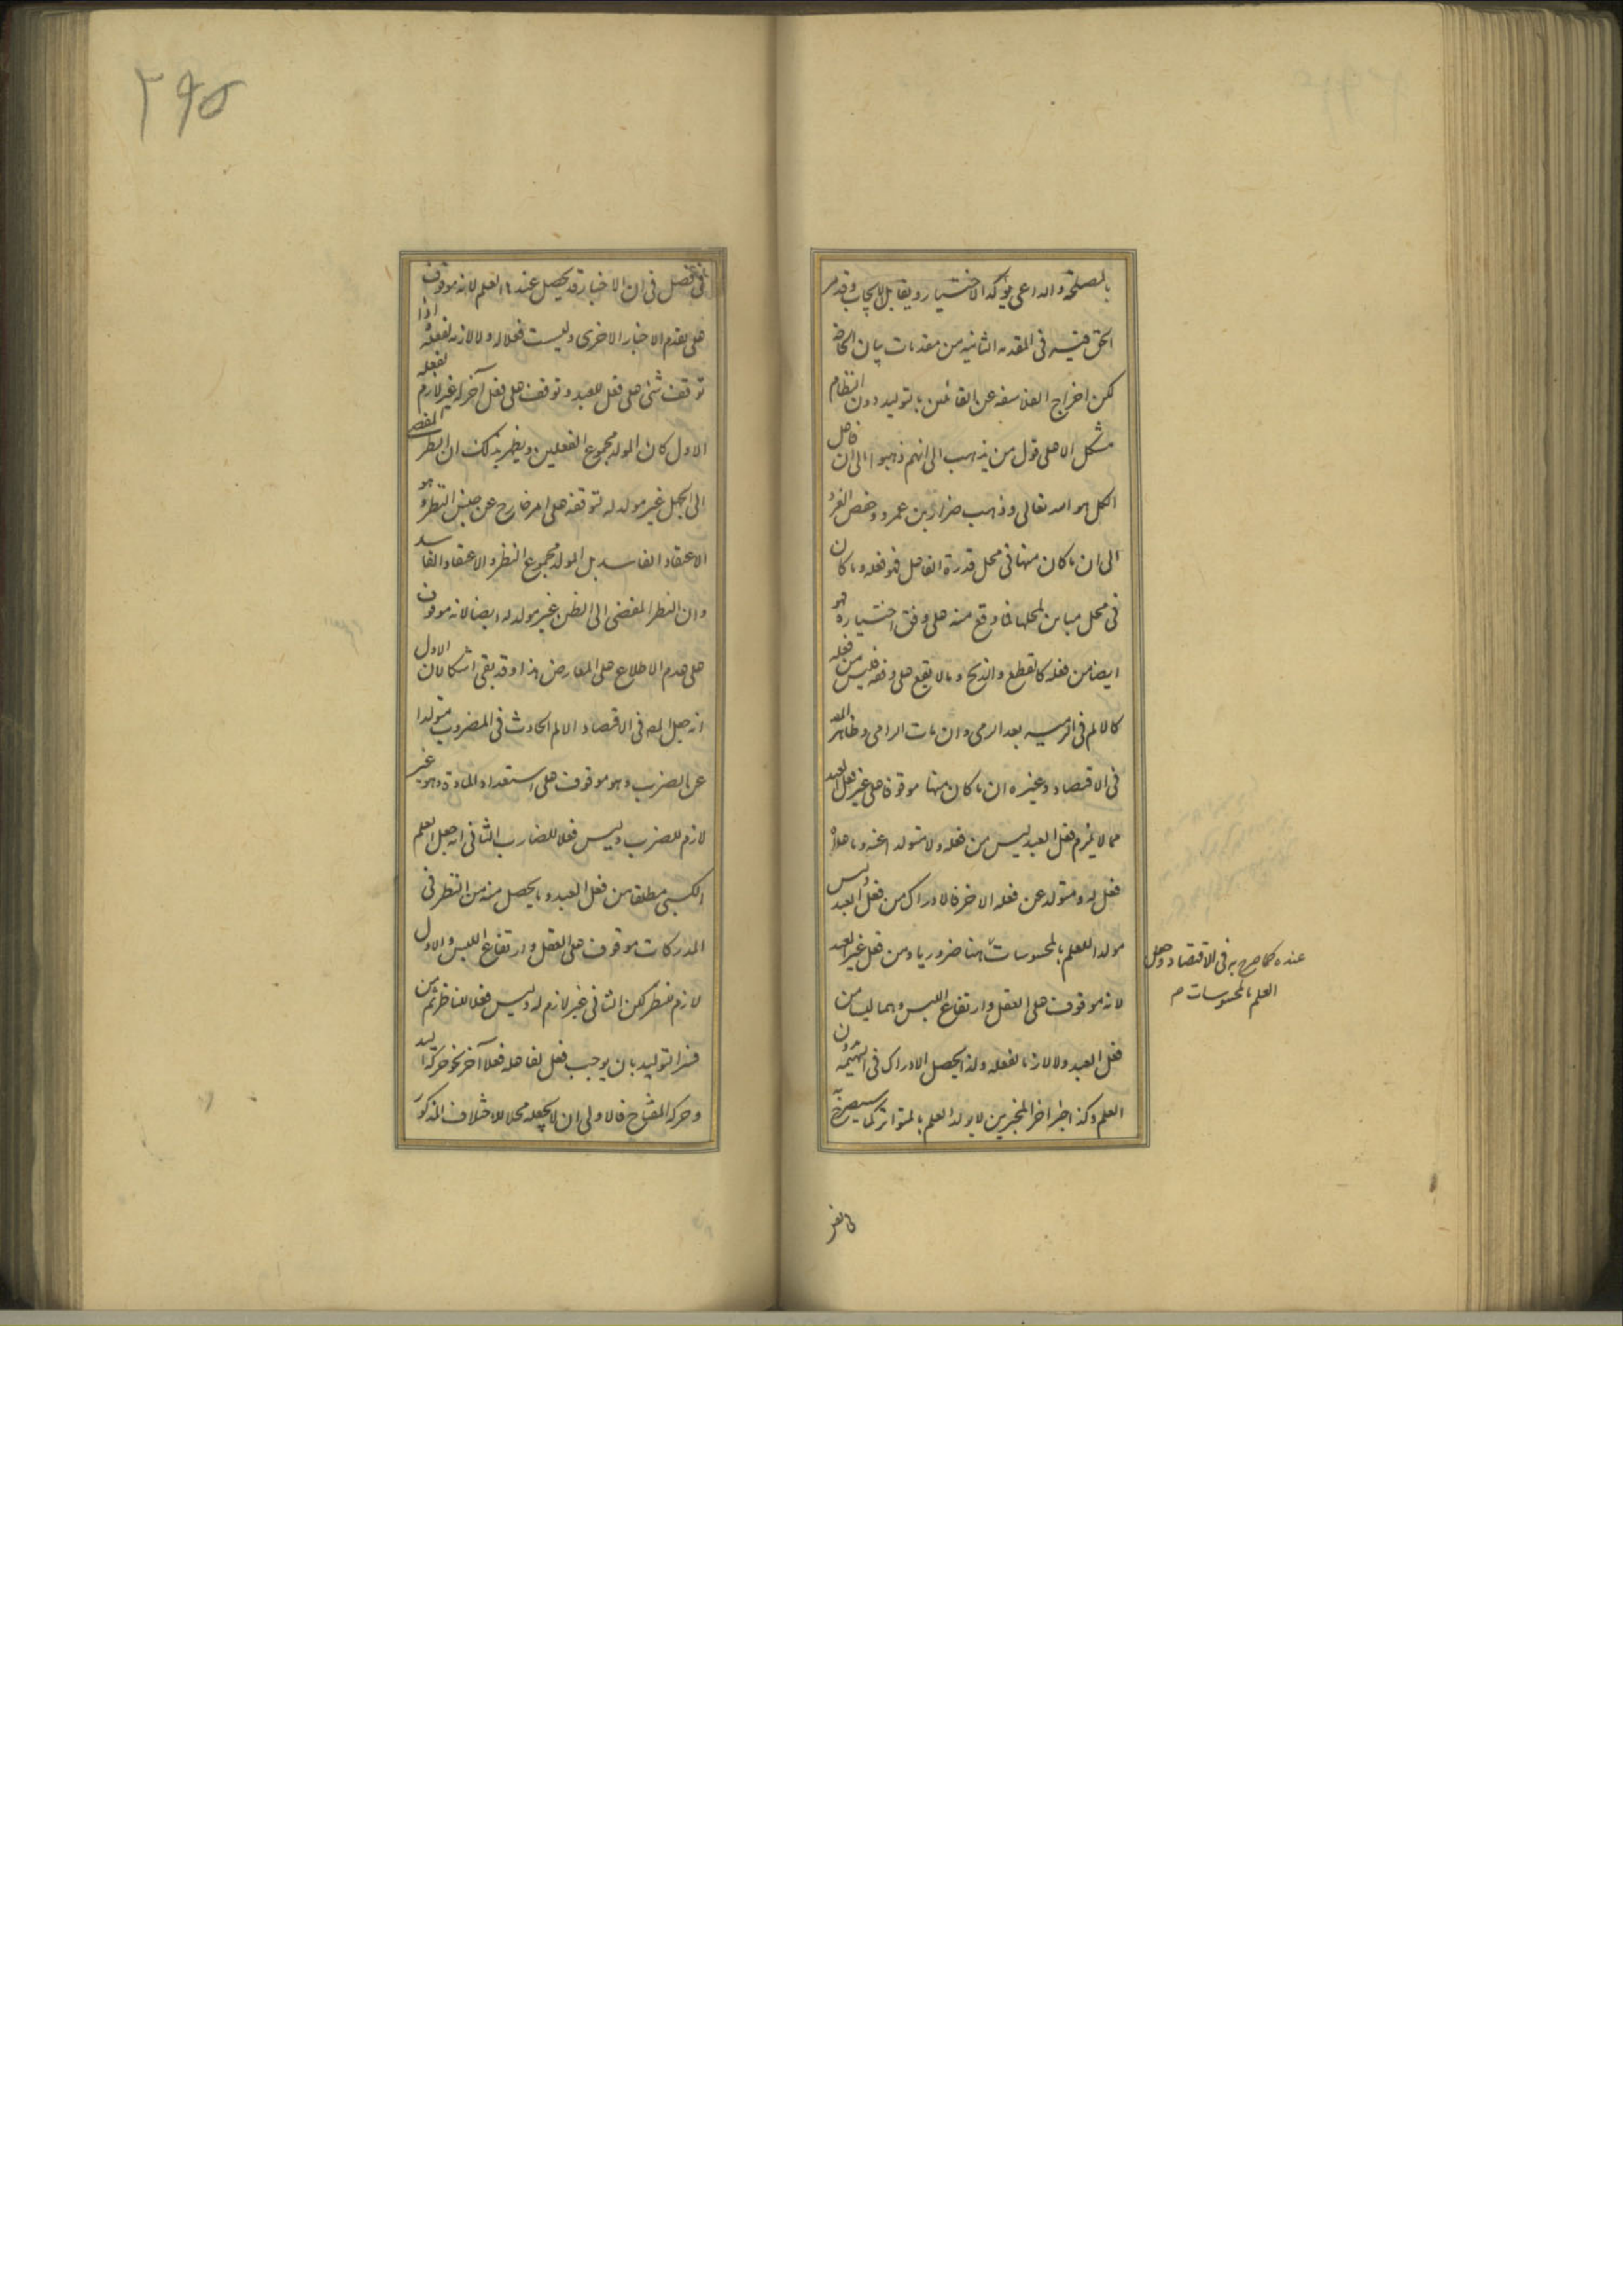 بالمصلحة والداعى يؤكد الاختيار ويقابل الايجاب وقد مر
الحق فيه فى المقدمة الثانية من مقدمات بيان الحاضر
لكن اخراج الفلاسفة عن القائلين بالتوليد دون النظام
مشكل الا على قول من يذهب الى انهم ذهبوا الى ان فاعل
الكل هو الله تعالى وذهب ضرار بن عمرو وحفص الفرد
الى ان ما كان منها فى محل قدرة الفاعل فهو فعله وما كان
فى محل مباين لمحلها فما وقع منه على وفق اختياره فهو
ايضا من فعله كالقطع والذبح وما لا يقع على وفقه فليس من فعله
كالالم فى الرمية بعد الرمى وان مات الرامى وظاهر المص
فى الاقتصاد وغيره ان ما كان منها موقوفا على غير فعل العبد
مما لا يلزم فعل العبد ليس من فعله ولا متولدا عنه وما عداه
فعل له ومتولد عن فعله الاخر فالادراك من فعل العبد وليس
مولدا للعلم بالمحسوسات هنا ضروريا ومن فعل غير العبد
لانه موقوف على العقل وارتفاع اللبس وهما ليسا من
فعل العبد ولا لازما لفعله ولذا يحصل الادراك فى البهيمة دون
العلم وكذا خبر اخر المخبرين لا يولد العلم بالمتواتر كما سيصرح به
عنده كما صرح به فى الاقتصاد وجعل
العلم بالمحسوسات م
فى فصل
فى فصل فى ان الاخبار قد يحصل عندها العلم لانه موقوف
على تقدم الاخبار الاخرى وليست فعلا له ولا لازمة لفعله اذا
توقف شئ على فعل للعبد وتوقف على فعل آخر له غير لازم لفعله
الاول كان المولد مجموع الفعلين ويظهر بذلك ان النظر المفضى
الى الجهل غير مولد له لتوقفه على امر خارج عن جنس النظر وهو
الاعتقاد الفاسد بل المولد مجموع النظر والاعتقاد الفاسد
وان النظر المفضى الى الظن غير مولد له ايضا لانه موقوف
على عدم الاطلاع على المعارض هذا وقد بقى اشكالان الاول
انه جعل المص فى الاقتصاد الالم الحادث فى المضروب متولدا
عن الضرب وهو موقوف على استعداد المادة وهو غير
لازم للضرب وليس فعلا للضارب الثانى انه جعل العلم
الكسبى مطلقا من فعل العبد وما يحصل منه من النظر فى
المدركات موقوف على العقل وارتفاع اللبس والاول
لازم للنظر لكن الثانى غير لازم له وليس فعلا للناظر ثم من
فسر التوليد بان يوجب فعل لفاعله فعلا آخر نحو حركة اليد
وحركة المفتاح فالاولى ان لا يجعله محلا للاختلاف المذكور
٢٩٥